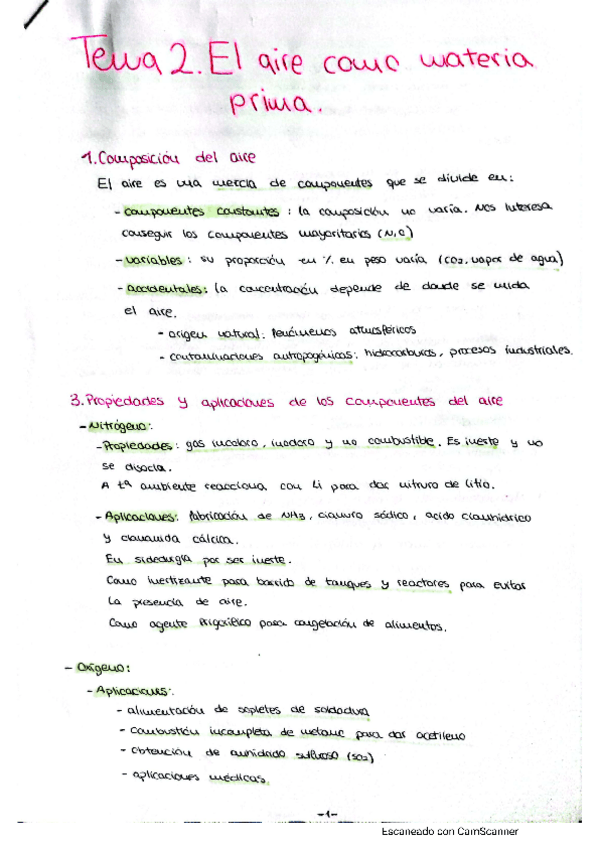 Tema 2. El aire como materia
prima.
1. Composición del aire
El aire es una mezcla de componentes que se divide en:
- componentes constantes: la composición no varía. Nos interesa
conseguir los componentes mayoritarios (N, O)
- variables: su proporción en % en peso varía (CO2, vapor de agua)
- accidentales: la concentración depende de donde se mida
el aire.
- origen natural: fenómenos atmosféricos
- contaminaciones antropogénicas: hidrocarburos, procesos industriales.
3. Propiedades y aplicaciones de los componentes del aire
- Nitrógeno:
- Propiedades: gas incoloro, inodoro y no combustible. Es inerte y no
se disocia.
A tª ambiente reacciona con Li para dar nitruro de litio.
- Aplicaciones: fabricación de NH3, cianuro sódico, acido cianhídrico
y cianamida cálcica.
En siderurgia por ser inerte.
Como inertizante para barrido de tanques y reactores para evitar
la presencia de aire.
Como agente frigorífico para congelación de alimentos.
- Oxígeno:
- Aplicaciones:
- alimentación de sopletes de soldadura
- combustión incompleta de metano para dar acetileno
- obtención de anhídrido sulfuroso (SO2)
- aplicaciones médicas.
-1-
Escaneado con CamScanner